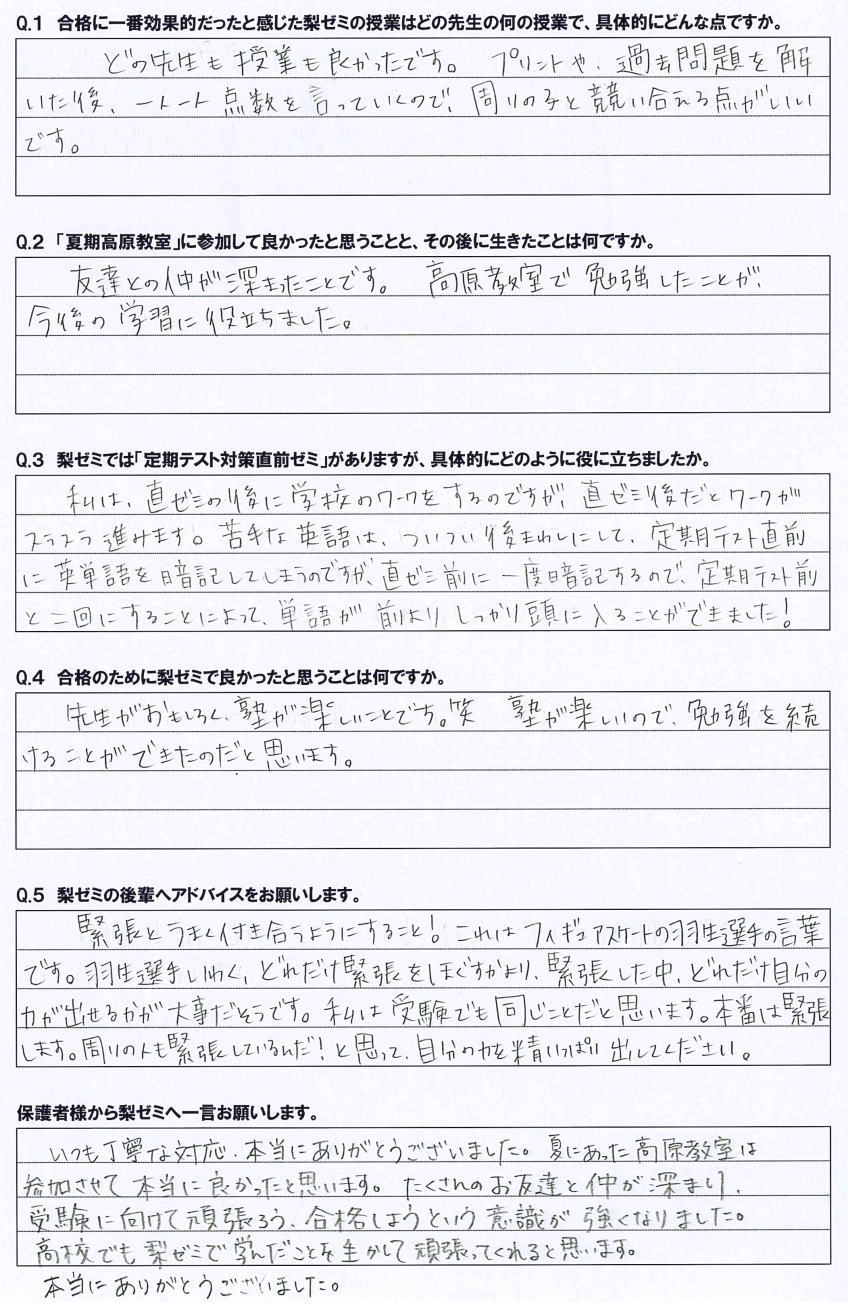 Q.1 合格に一番効果的だったと感じた梨ゼミの授業はどの先生の何の授業で、具体的にどんな点ですか。
どの先生も授業も良かったです。 プリントや、過去問題を解
いた後、一人一人点数を言っていくので、周りの子と競い合える点がいい
です。
Q.2 「夏期高原教室」に参加して良かったと思うことと、その後に生きたことは何ですか。
友達との仲が深まったことです。 高原教室で勉強したことが、
今後の学習に役立ちました。
Q.3 梨ゼミでは「定期テスト対策直前ゼミ」がありますが、具体的にどのように役に立ちましたか。
私は、直ゼミの後に学校のワークをするのですが、直ゼミ後だとワークが
スラスラ進みます。苦手な英語は、ついつい後まわしにして、定期テスト直前
に英単語を暗記してしまうのですが、直ゼミ前に一度暗記するので、定期テスト前
と二回にすることによって、単語が前よりしっかり頭に入ることができました!
Q.4 合格のために梨ゼミで良かったと思うことは何ですか。
先生がおもしろく、塾が楽しいことです。笑 塾が楽しいので、勉強を続
けることができたのだと思います。
Q.5 梨ゼミの後輩へアドバイスをお願いします。
緊張とうまく付き合うようにすること! これはフィギュアスケートの羽生選手の言葉
です。羽生選手いわく、どれだけ緊張をほぐすかより、緊張した中、どれだけ自分の
力が出せるかが大事だそうです。私は受験でも同じことだと思います。本番は緊張
します。周りの人も緊張しているんだ!と思って、自分の力を精いっぱい出してください。
保護者様から梨ゼミへ一言お願いします。
いつも丁寧な対応、本当にありがとうございました。夏にあった高原教室は
参加させて本当に良かったと思います。たくさんのお友達と仲が深まり、
受験に向けて頑張ろう、合格しようという意識が強くなりました。
高校でも梨ゼミで学んだことを生かして頑張ってくれると思います。
本当にありがとうございました。